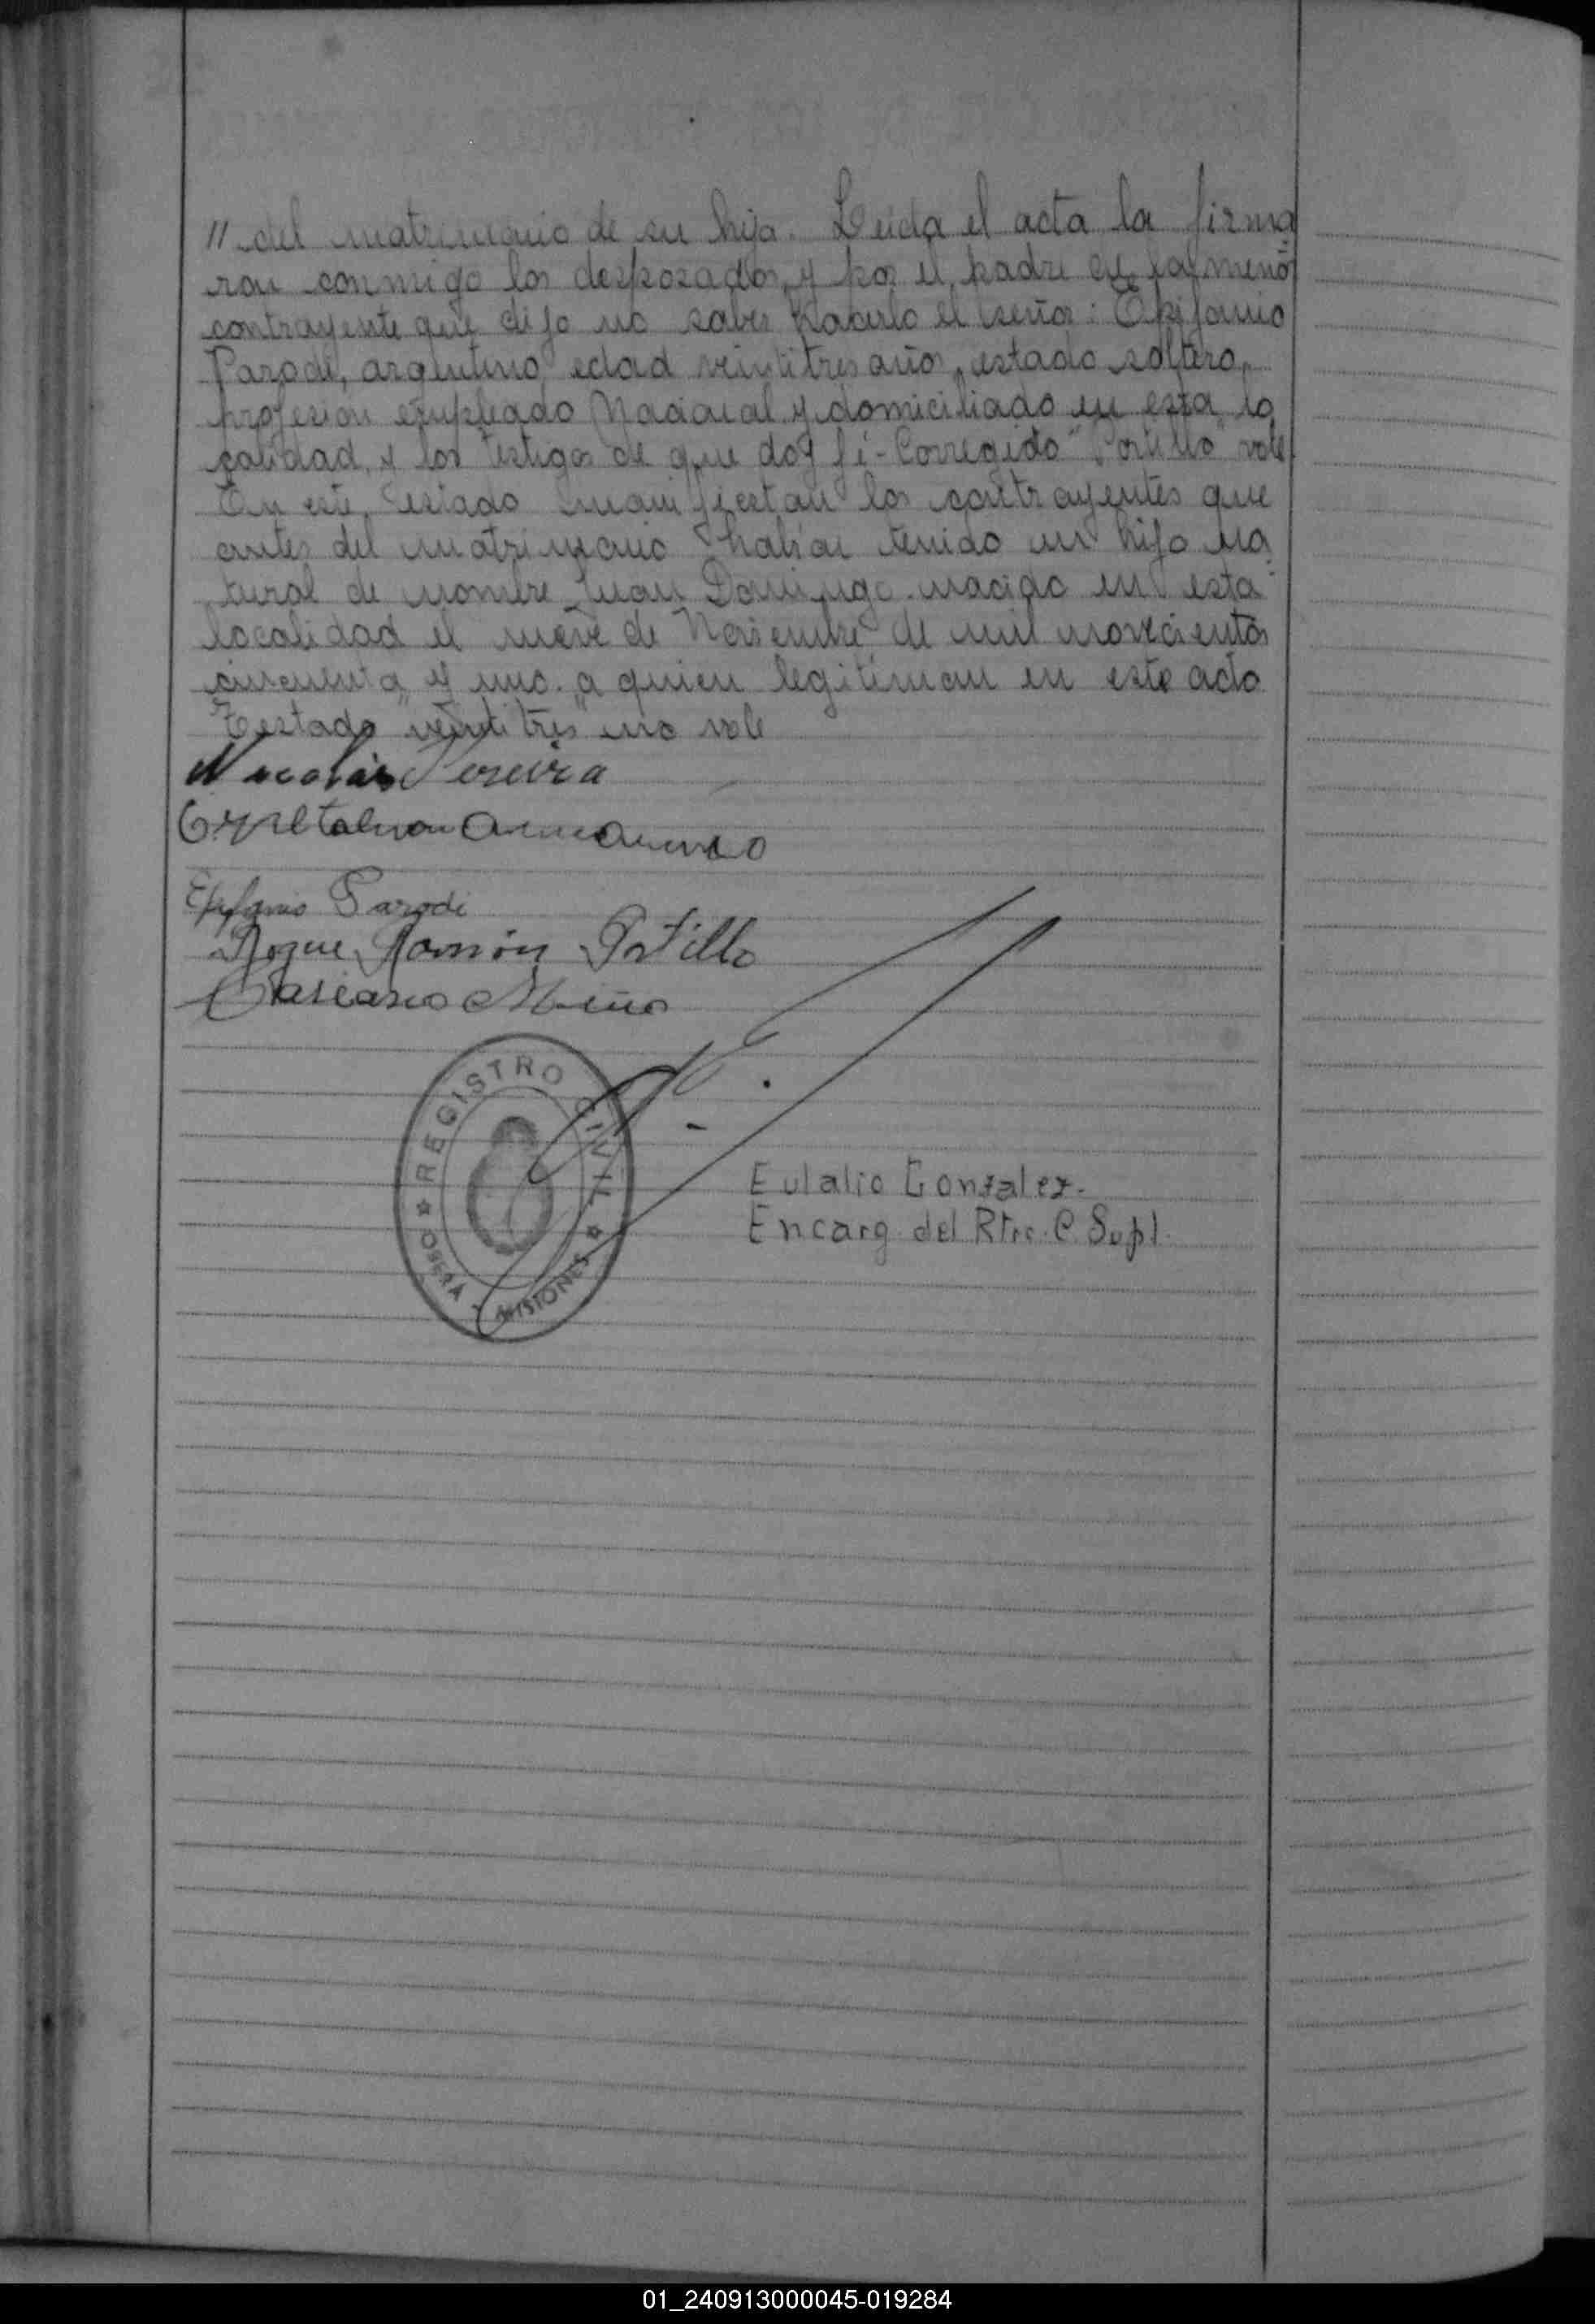 // del matrimonio de su hija. Leida el acta la firma
ron conmigo los desposados, y por el padre de la menor
contrayente que dijo no saber hacerlo el señor: Epifanio
Parodi, argentino, edad veintitres años, estado soltero,
profesión empleado Nacional y domiciliado en esta lo
calidad, y los testigos de que doy fé - Corregido "Portillo" vale
En este estado manifiestan los contrayentes que
antes del matrimonio habian tenido un hijo na
tural de nombre Juan Domingo nacido en esta
localidad el nueve de Noviembre de mil novecientos
cincuenta y uno. a quien legitiman en este acto
Testado "veintitres" no vale
Nicolás Pereira
Epifanio Parodi
Roque Ramón Portillo
Miño
REGISTRO CIVIL
OBERÁ - MISIONES
Eulalio Gonzalez.
Encarg. del Rtro. C. Supl.
01_240913000045-019284